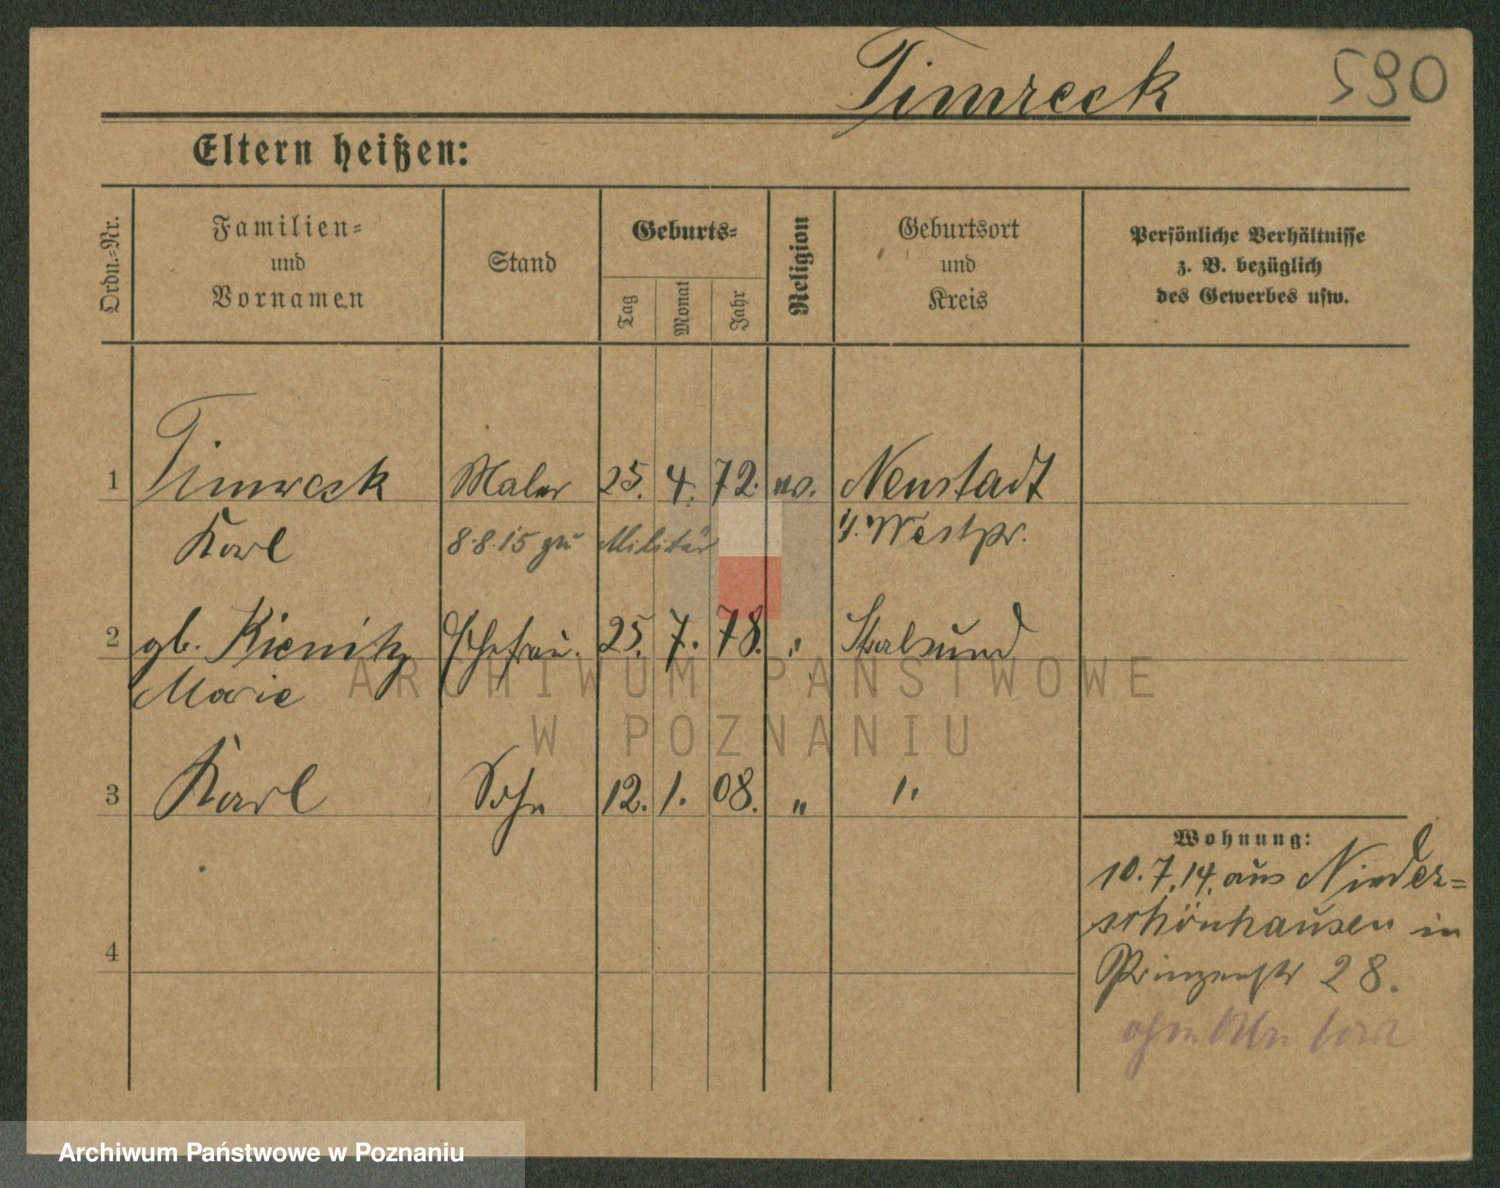 Timreck 590
Eltern heißen:
Ordn.-Nr.
Familien-
und
Vornamen
Stand
Geburts-
Tag
Monat
Jahr
Religion
Geburtsort
und
Kreis
Persönliche Verhältnisse
z. B. bezüglich
des Gewerbes usw.
1 Timreck Maler 25. 4. 72. ev. Neustadt
Karl 8.8.15 zu Militär Westpr.
2 gb. Kienitz Ehefrau. 25. 7. 78. " Stralsund
Marie
3 Karl Sohn 12. 1. 08. " "
4
Wohnung:
10.7.14. aus Nieder=
schönhausen in
Prinzenstr 28.
ARCHIWUM PAŃSTWOWE
W POZNANIU
Archiwum Państwowe w Poznaniu